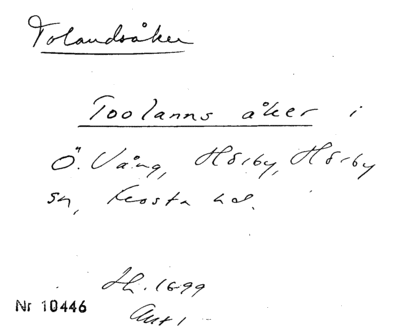 Tolandsåker
Toolanns åker i
Ö. Vång, Hörby, Hörby
sn, Frosta hd.
Jb. 1699
Ant 1
Nr 10446